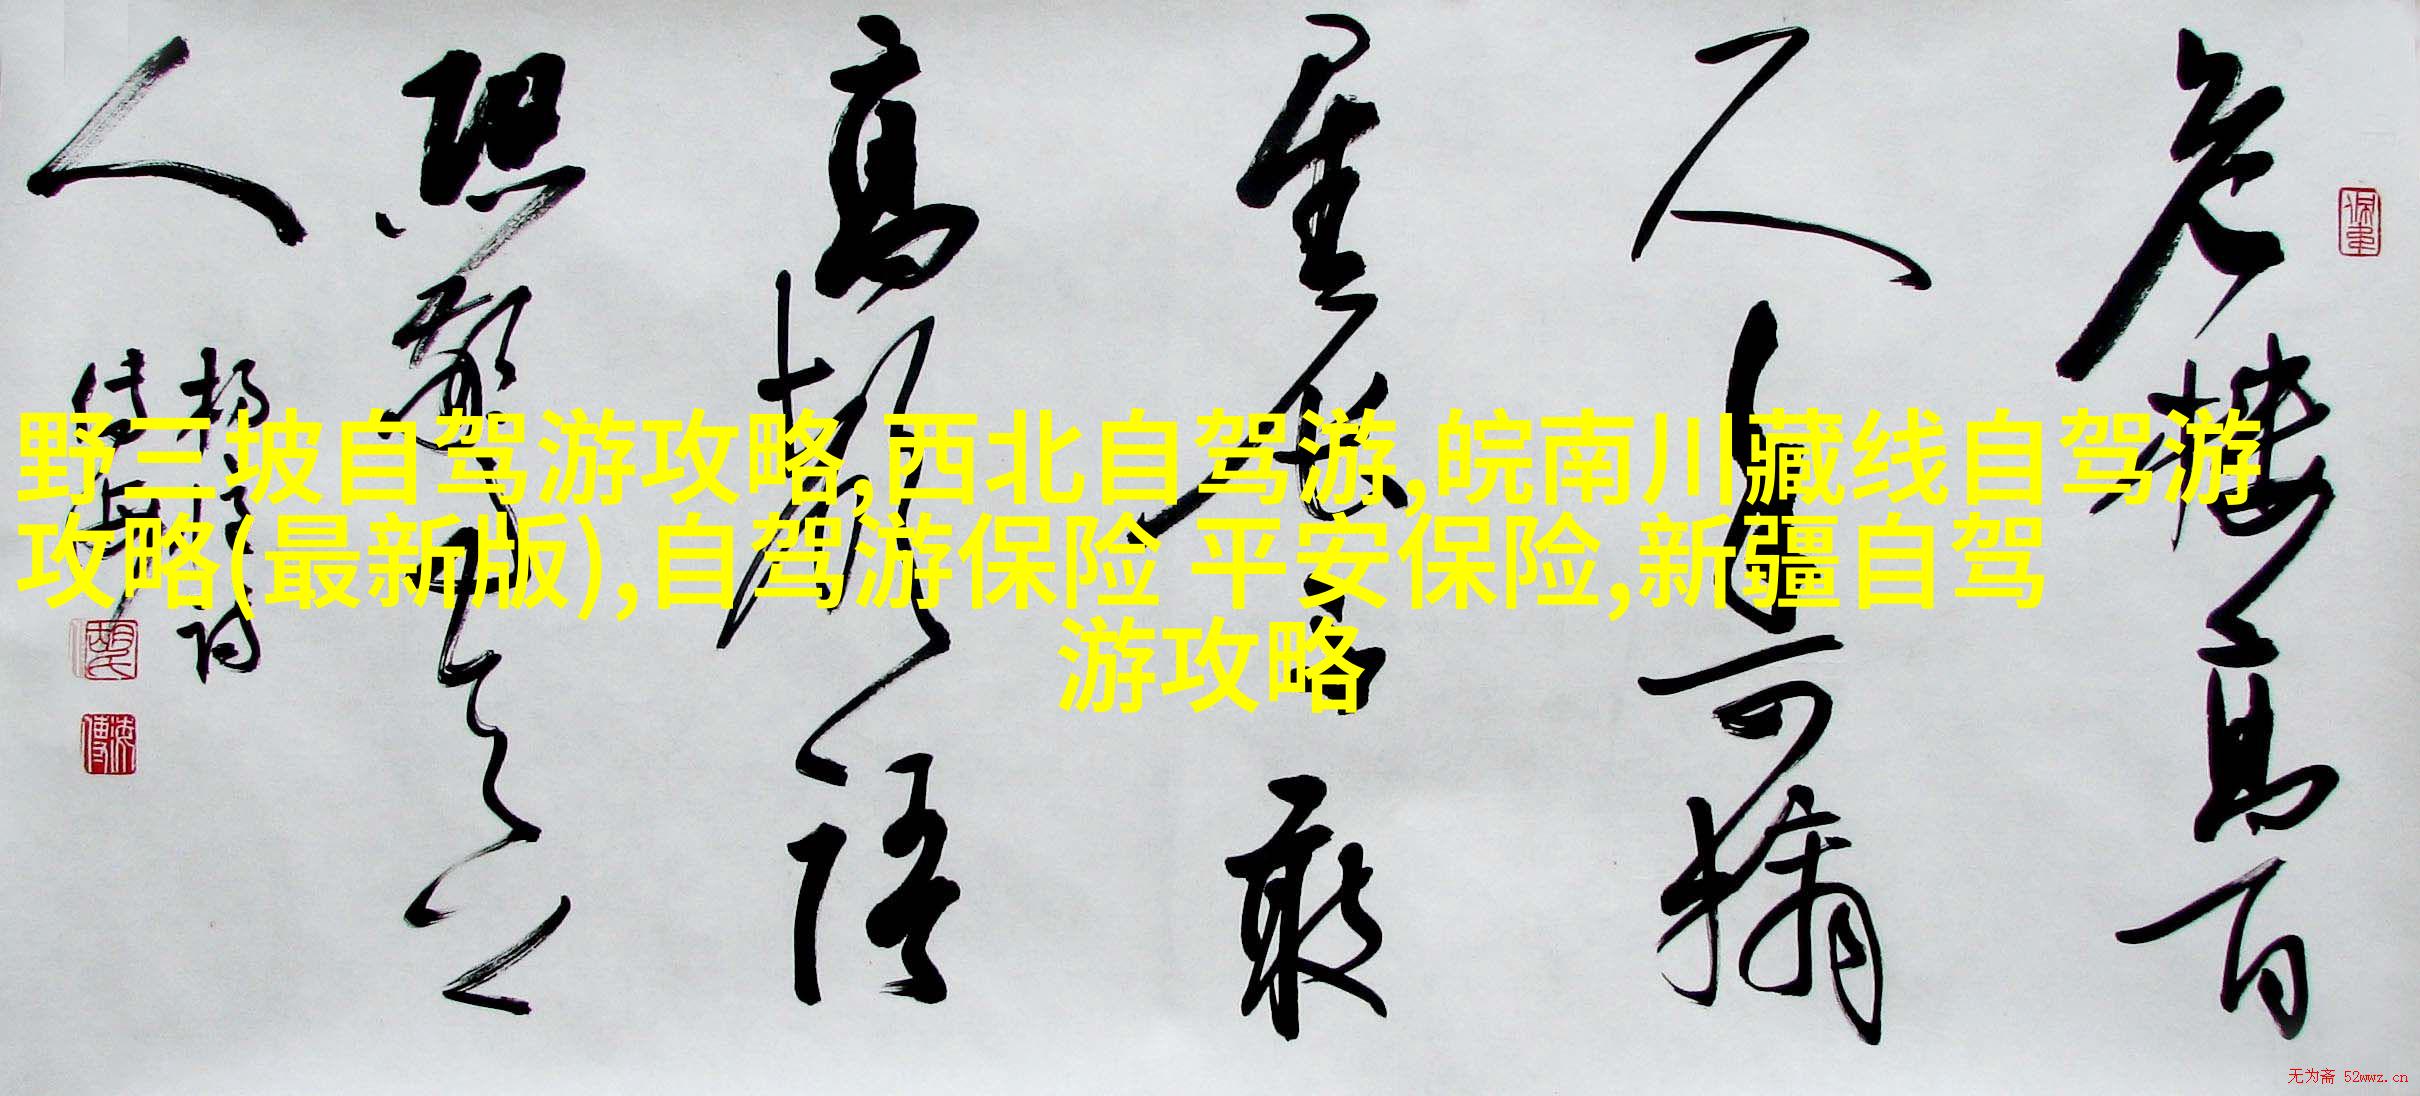 野三坡自驾游攻略,西北自驾游,皖南川藏线自驾游
攻略(最新版),自驾游保险 平安保险,新疆自驾
游攻略
危樓高百
尺手可摘
星辰不敢
高聲語
恐驚天上
人
无为斋 52wwz.cn